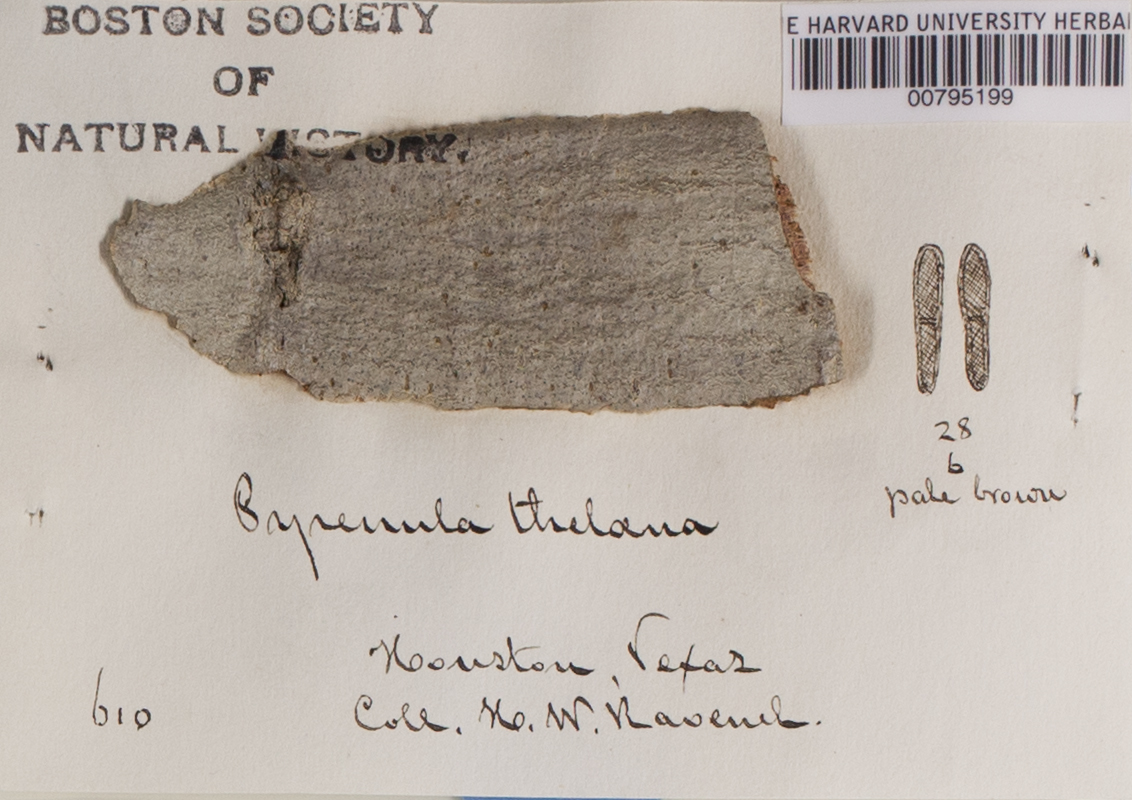 BOSTON SOCIETY
OF
NATURAL HISTORY.
E HARVARD UNIVERSITY HERBA
00795199
28
6
pale brown
Pyrenula thelæna
Houston, Texas
Coll. H. W. Ravenel.
610